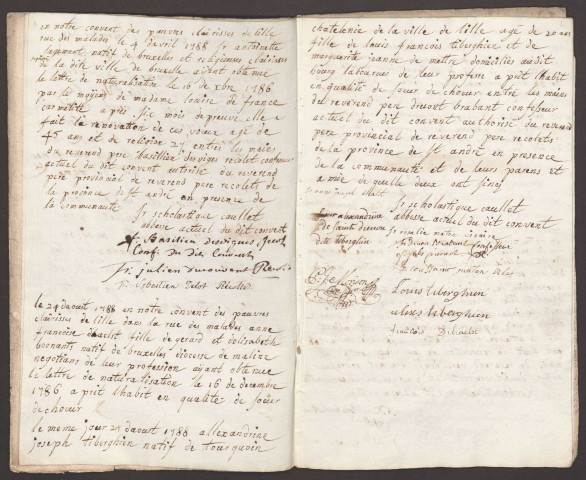 en notre convent des pauvres clairisses de lille
rue des malades le 4 davril 1788 sr antoinette
natif de bruxelles et religieuses clairisses
de la dite ville de bruxelle aiant obtenue
le lettre de naturalisation le 16 de xbre 1786
par le moyen de madame louise de france
carmelite apres six mois de preuve elle a
fait la renovation de ces voeux age de
45 ans et de religion 24 entres les mains
du reverend pere basilien desvignes recolet confesseur
actuel du dit convent autorise du reverend
pere provincial de reverend pere recolets de
la province de st andré en presence de
la communauté
sr scholastique caullet
abbesse actuel du dit convent
fr. Basilien desvignes Recol.
Conf. du dit Couvent
fr. julien
fr. Sebastien Delot Récollet
le 24 daoust 1788 en notre convent des pauvres
clairisses de lille dans la rue des malades anne
francoise fille de gerard et delisabeth
natif de bruxelles diocese de maline
negotians de leur profession aiant obtenue
le lettre de naturalisation le 16 de decembre
1786 a prit lhabit en qualité de soeur
de choeur
le meme jour 24 daoust 1788 allexandrine
joseph tiberghien natif de tourquoin
chatelenie de la ville de lille age de 20 ans
fille de louis francois tiberghien et de
marguerite jeanne de mettre domiciliés audit
bourg laboureur de leur profession a prit lhabit
en qualité de soeur de choeur entre les mains
du reverend pere druort brabant confesseur
actuel du dit convent authorisé du reverend
pere provincial de reverend pere recolets
de la province de st andré en presence
de la communauté et de leurs parens et
amis de quelle deux ont signé
Sr scholastique caullet
abbesse actuel du dit convent
soeur alexandrine
dite tiberghien
sr rosalie notre vicaire
confesseur
Louis tiberghien
alexis tiberghien
francois